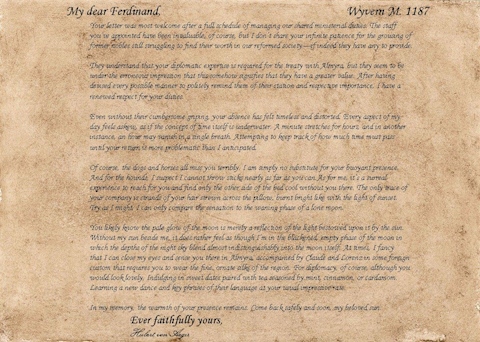 My dear Ferdinand, Wyvern M. 1187
Your letter was most welcome after a full schedule of managing our shared ministerial duties. The staff
you've appointed have been invaluable, of course, but I don't share your infinite patience for the groaning of
former nobles still struggling to find their worth in our reformed society—if indeed they have any to provide.
They understand that your diplomatic expertise is required for the treaty with Almyra, but they seem to be
under the erroneous impression that this somehow signifies that they have a greater value. After having
devised every possible manner to politely remind them of their station and respective importance, I have a
renewed respect for your duties.
Even without their cumbersome griping, your absence has felt timeless and distorted. Every aspect of my
day feels askew, as if the concept of time itself is underwater. A minute stretches for hours, and in another
instance, an hour may happen in a single breath. Attempting to keep track of how much time must pass
until your return is more problematic than I anticipated.
Of course, the dogs and horses all miss you terribly. I am simply no substitute for your buoyant presence.
And for the hounds, I suspect I cannot throw sticks nearly as far as you can. As for me, it's a surreal
experience to reach for you and find only the other side of the bed cool without you there. The only trace of
your company is strands of your hair strewn across the pillow, burnt bright like with the light of sunset.
Try as I might, I can only compare the sensation to the waning phase of a lone moon.
You likely know the pale glow of the moon is merely a reflection of the light bestowed upon it by the sun.
Without my sun beside me, it does rather feel as though I'm in the blackened, empty phase of the moon in
which the depths of the night sky blend almost indistinguishably into the moon itself. At times, I fancy
that I can close my eyes and seize you there in Almyra, accompanied by Claude and Lorenz in some foreign
custom that requires you to wear the fine, ornate silks of the region. For diplomacy, of course, although you
would look lovely. Indulging in sweet dates paired with tea seasoned by mint, cinnamon, or cardamom.
Learning a new dance and key phrases of their language at your usual impressive rate.
In my memory, the warmth of your presence remains. Come back safely and soon, my beloved sun.
Ever faithfully yours,
Hubert von Vestra